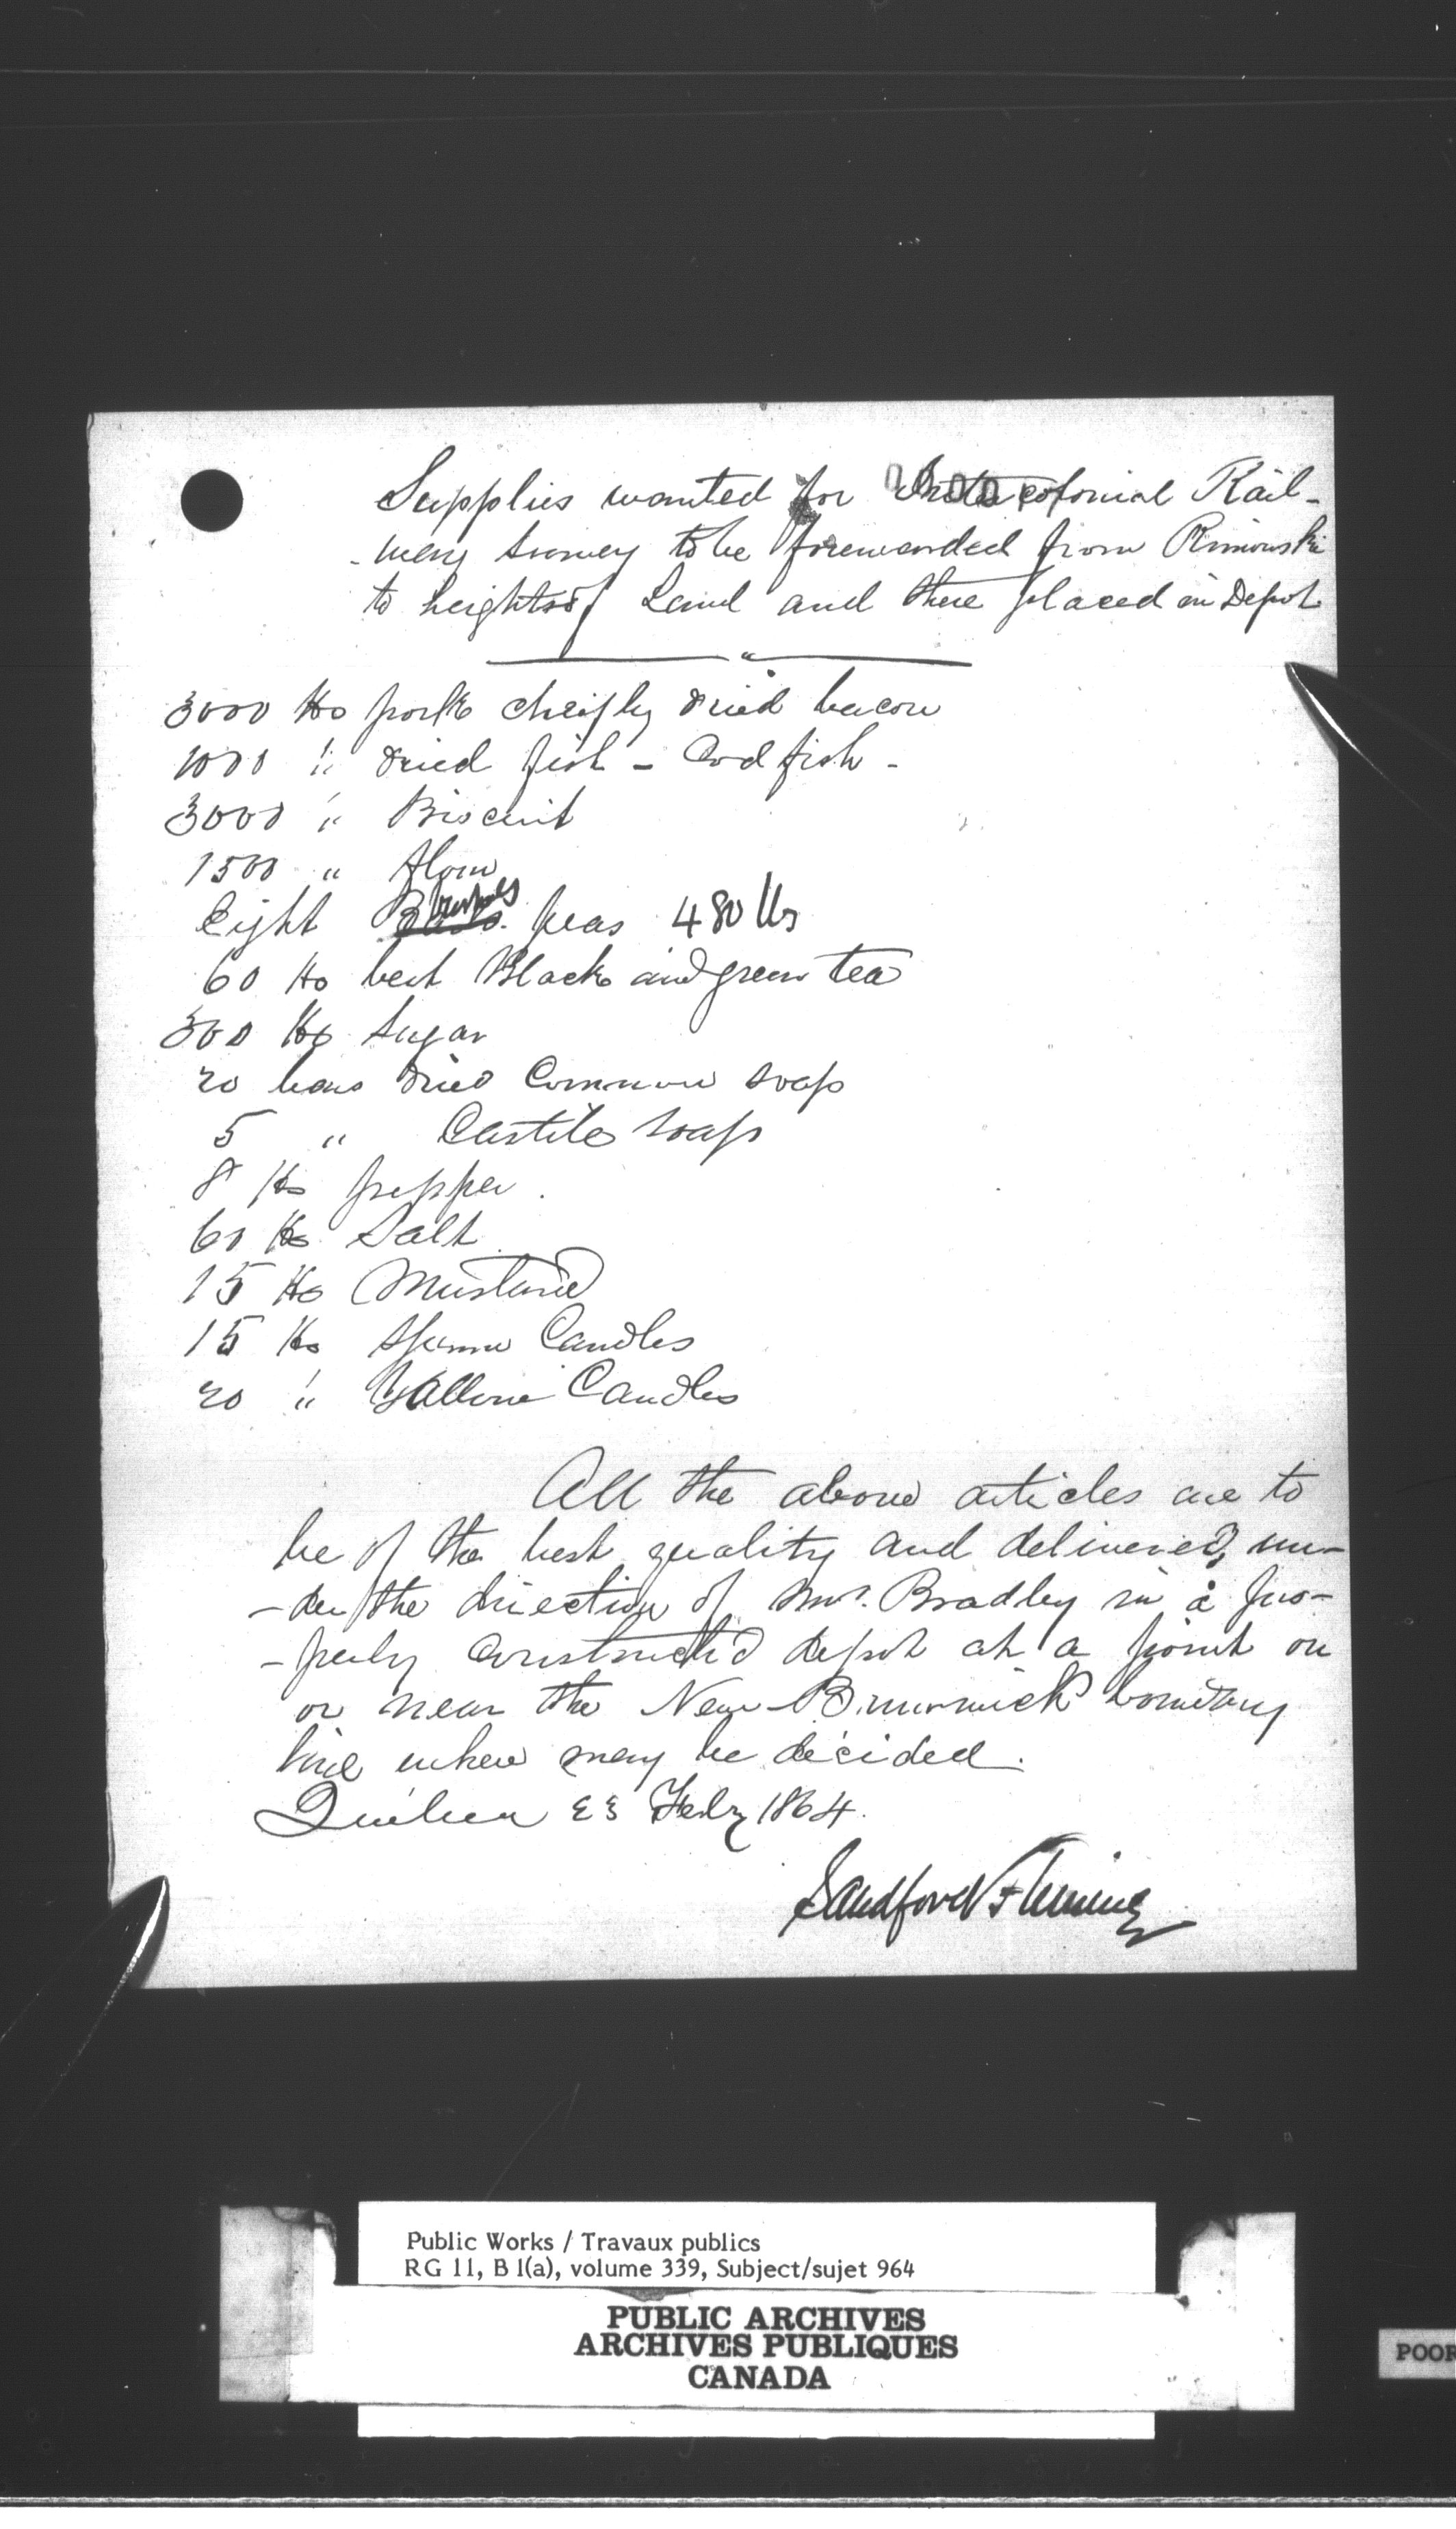 Supplies wanted for Intercolonial Rail-
-way Survey to be forewarded from Rimouski
to heights of Land and there placed in Depot
3000 lbs pork cheifly dried bacon
1000 " dried fish - Cod fish -
3000 " Biscuit
1500 " flour
Eight bushels peas 480 lbs
60 lbs best Black and green tea
300 lbs Sugar
20 bars dried Common soap
5 " Castile soap
8 lbs pepper.
60 lbs Salt
15 lbs Mustard
15 lbs Sperm Candles
20 " Tallow Candles
All the above articles are to
be of the best quality and delivered, un-
-der the direction of Mr. Bradley in a pro-
-perly constructed depot at a point on
or near the New-Brunswick boundary
line where may be decided.
Quebec 23 Feby 1864.
Sandford Fleming
Public Works / Travaux publics
RG 11, B 1(a), volume 339, Subject/sujet 964
PUBLIC ARCHIVES
ARCHIVES PUBLIQUES
CANADA
POOR